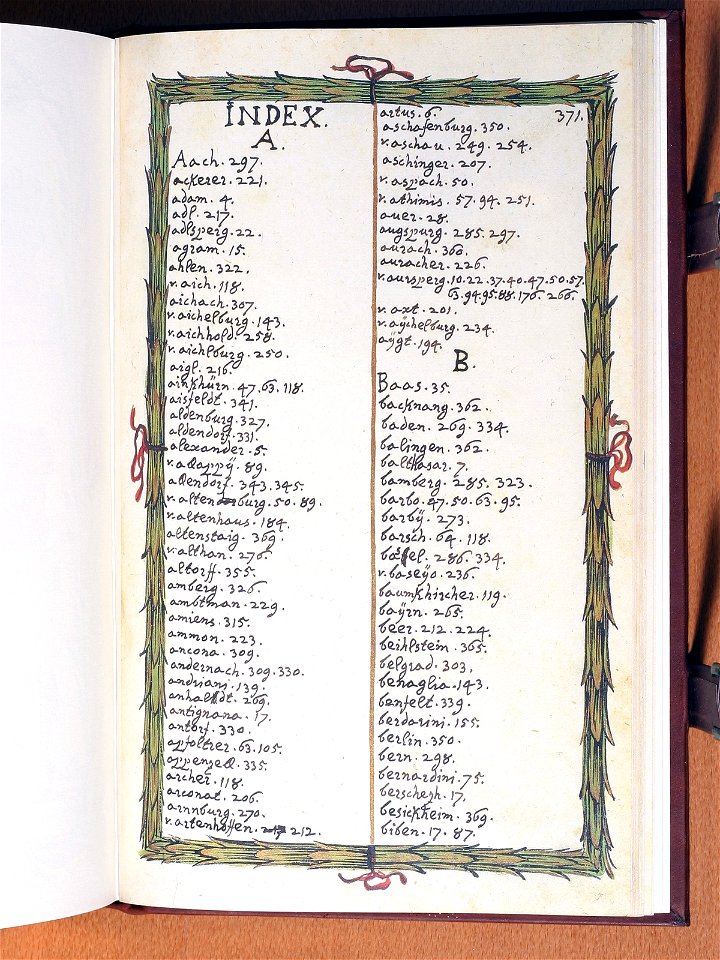 INDEX.
A.
Aach. 297.
ackerer. 221.
adam. 4.
adl. 217.
adlsperg. 22.
agram. 15.
ahlen. 322.
v. aich. 118.
aichach. 307.
v. aichelburg. 143.
v. aichhold. 258.
v. aichlburg. 250.
aigl. 216.
ainkhürn. 47. 63. 118.
aisfeldt. 341.
aldenburg. 327.
aldendorf. 331.
alexander. 5.
89.
343. 345.
50. 89.
v. altenhaus. 184.
altenstaig. 369.
v. althan. 276.
altorff. 355.
amberg. 326.
ambtman. 229.
amiens. 315.
ammon. 223.
ancona. 309.
andernach. 309. 330.
andriani. 139.
269.
antignana. 17.
antorf. 330.
apfoltrer. 63. 105.
335.
archer. 118.
arconat. 206.
arnnburg. 270.
v. artenhoffen. 212.
371.
artus. 6.
aschafenburg. 350.
v. aschau. 249. 254.
aschinger. 207.
v. aspach. 50.
v. athimis. 57. 94. 251.
auer. 28.
augspurg. 285. 297.
aurach. 360.
auracher. 226.
v. aursperg. 10. 22. 37. 40. 47. 50. 57.
63. 94. 95. 88. 176. 266.
v. axt. 201.
v. aÿchelburg. 234.
aÿgt. 194.
B.
Baas. 35.
backnang. 362.
baden. 269. 334.
balingen. 362.
balthasar. 7.
bamberg. 285. 323.
barbo. 47. 50. 63. 95.
barbÿ. 273.
barsch. 64. 118.
286. 334.
v. baseÿo. 236.
baumkhircher. 119.
baÿrn. 265.
beer. 212. 224.
beihlstein. 365.
belgrad. 303.
benaglia. 143.
benfelt. 339.
berdarini. 155.
berlin. 350.
bern. 298.
bernardini. 75.
17.
besickheim. 369.
biben. 17. 87.